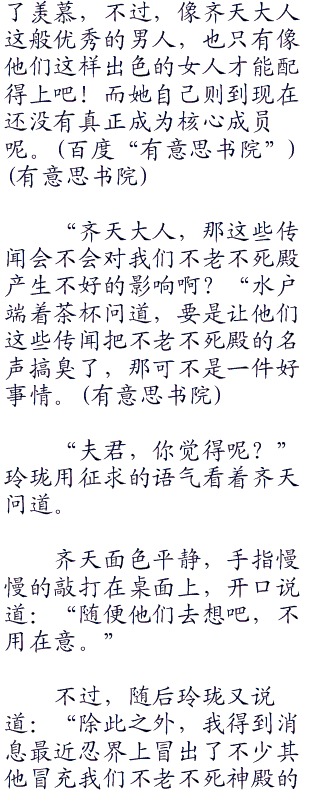 了羡慕，不过，像齐天大人
这般优秀的男人，也只有像
他们这样出色的女人才能配
得上吧！而她自己则到现在
还没有真正成为核心成员
呢。(百度“有意思书院”)
(有意思书院)
“齐天大人，那这些传
闻会不会对我们不老不死殿
产生不好的影响啊？“水户
端着茶杯问道，要是让他们
这些传闻把不老不死殿的名
声搞臭了，那可不是一件好
事情。(有意思书院)
“夫君，你觉得呢？”
玲珑用征求的语气看着齐天
问道。
齐天面色平静，手指慢
慢的敲打在桌面上，开口说
道：“随便他们去想吧，不
用在意。”
不过，随后玲珑又说
道：“除此之外，我得到消
息最近忍界上冒出了不少其
他冒充我们不老不死神殿的